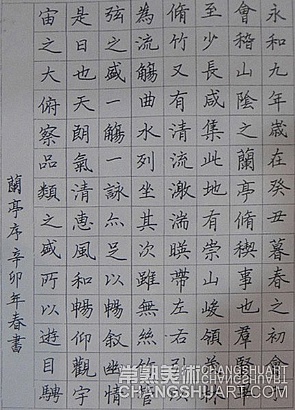 永和九年歲在癸丑暮春之初會
會稽山陰之蘭亭脩禊事也羣賢畢
至少長咸集此地有崇山峻領茂
脩竹又有清流激湍暎帶左右引以
為流觴曲水列坐其次雖無絲竹管
弦之盛一觴一詠亦足以暢叙幽情
是日也天朗氣清惠風和暢仰觀宇
宙之大俯察品類之盛所以遊目騁
蘭亭序辛卯年春書
常熟美術
CHANGSHUART